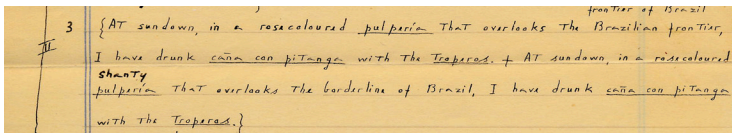 frontier of Brazil
3 {AT sundown, in a rosecoloured pulpería that overlooks the Brazilian frontier,
II
I have drunk caña con pitanga with the Troperos. + At sundown, in a rosecoloured
shanty
pulpería that overlooks the borderline of Brazil, I have drunk caña con pitanga
with the Troperos.}